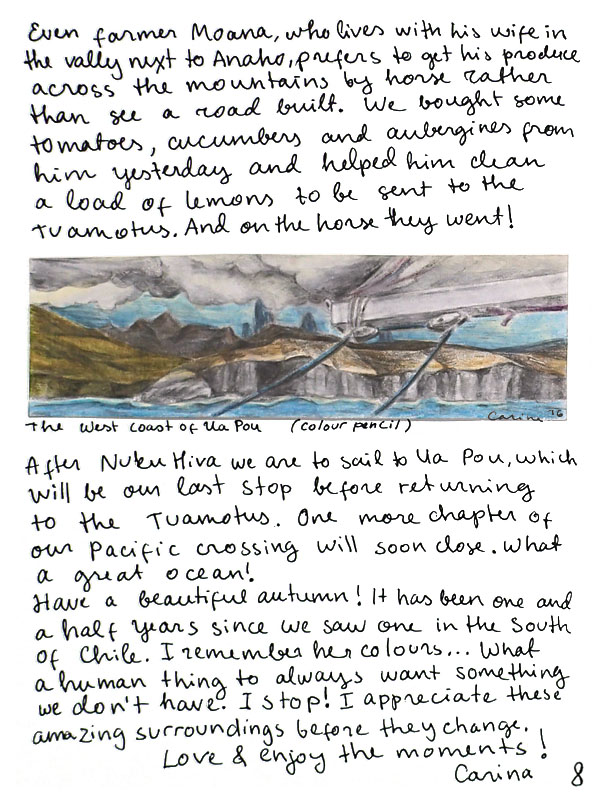 Even farmer Moana, who lives with his wife in
the vally next to Anaho, prefers to get his produce
across the mountains by horse rather
than see a road built. We bought some
tomatoes, cucumbers and aubergines from
him yesterday and helped him clean
a load of lemons to be sent to the
Tuamotus. And on the horse they went!
Carina '16
The West Coast of Ua Pou (colour pencil)
After Nuku Hiva we are to sail to Ua Pou, which
will be our last stop before returning
to the Tuamotus. One more chapter of
our Pacific crossing will soon close. What
a great ocean!
Have a beautiful autumn! It has been one and
a half years since we saw one in the South
of Chile. I remember her colours... What
a human thing to always want something
we don't have. I stop! I appreciate these
amazing surroundings before they change.
Love & enjoy the moments!
Carina 8